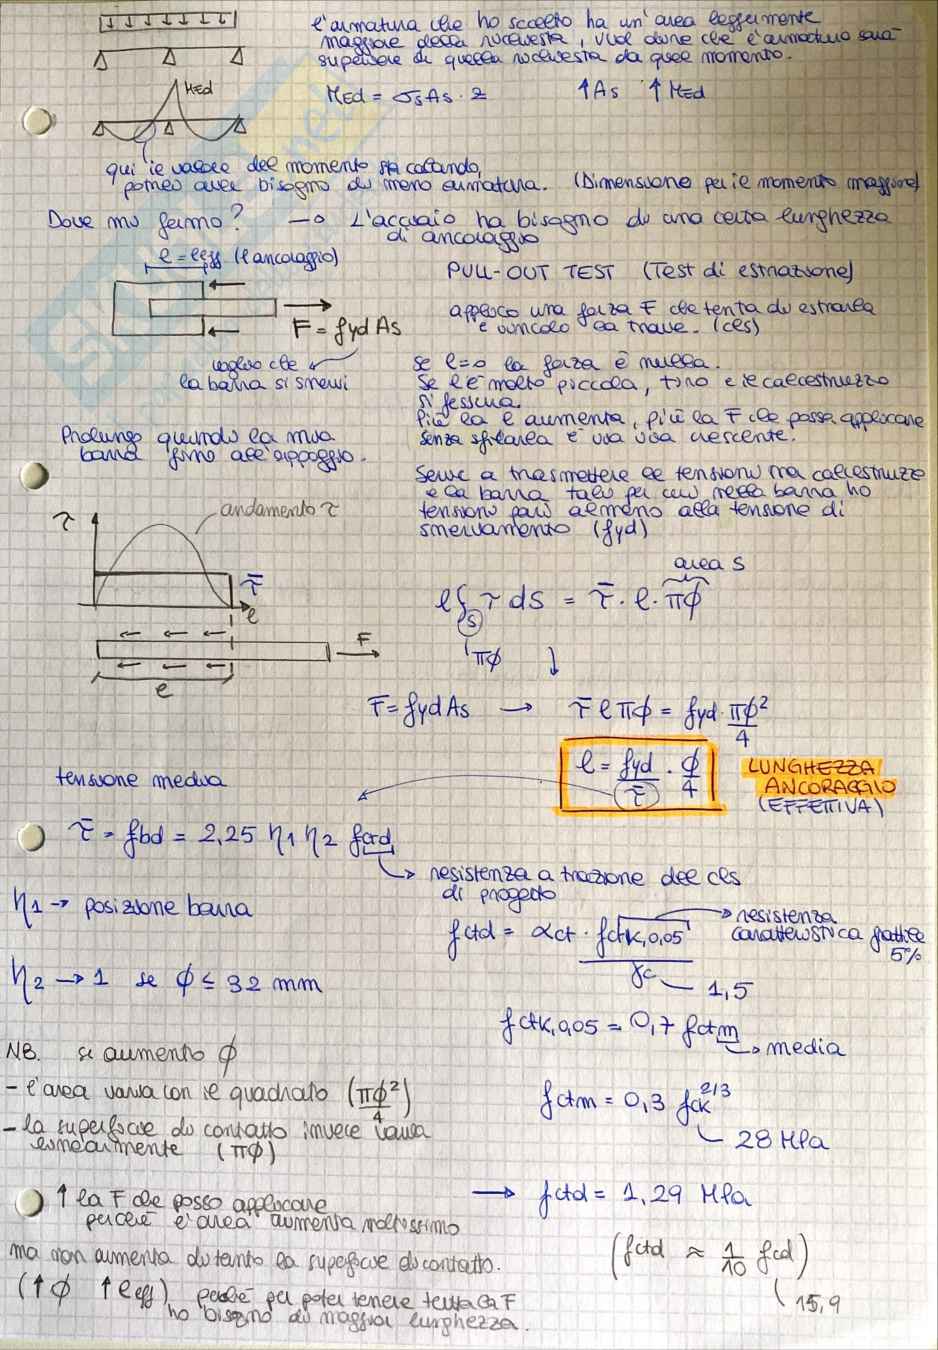 l'armatura che ho scelto ha un'area leggermente
maggiore della richiesta, vuol dire che l'armatura sarà
superiore di quella richiesta da quel momento.
MEd
MEd = σs As · z ↑As ↑MEd
qui il valore del momento sta calando,
potrei aver bisogno di meno armatura. (Dimensiono per il momento maggiore)
Dove mi fermo? → L'acciaio ha bisogno di una certa lunghezza
di ancoraggio
l = leff (l ancoraggio)
PULL-OUT TEST (Test di estrazione)
applico una forza F che tenta di estrarla
e vincolo la trave. (cls)
F = fyd As
voglio che
la barra si snervi
Se l=0 la forza è nulla.
Se l è molto piccola, tiro e il calcestruzzo
si fessura.
Più la l aumenta, più la F che posso applicare
senza sfilarla è via via crescente.
Prolungo quindi la mia
barra fino all'appoggio.
Serve a trasmettere le tensioni tra calcestruzzo
e la barra tali per cui nella barra ho
tensioni pari almeno alla tensione di
snervamento (fyd)
τ
andamento τ
τ̄
l
F
l
area S
l ∫s τ dS = τ̄ · l · πϕ
πϕ ↓
F = fyd As → τ̄ l πϕ = fyd · πϕ²/4
l = fyd/τ̄ · ϕ/4
LUNGHEZZA
ANCORAGGIO
(EFFETTIVA)
tensione media
τ̄ = fbd = 2,25 η1 η2 fctd
resistenza a trazione del cls
di progetto
η1 → posizione barra
fctd = αct · fctk,0,05 / γc
resistenza
caratteristica frattile
5%
1,5
η2 → 1 se ϕ ≤ 32 mm
fctk,0,05 = 0,7 fctm
media
NB. se aumento ϕ
- l'area varia con il quadrato (πϕ²/4)
- la superficie di contatto invece varia
linearmente (πϕ)
fctm = 0,3 fck^2/3
28 MPa
→ fctd = 1,29 MPa
↑ la F che posso applicare
perché l'area aumenta moltissimo
ma non aumenta di tanto la superficie di contatto.
(↑ϕ ↑leff) perché per poter tenere tutta la F
ho bisogno di maggior lunghezza.
(fctd ≈ 1/10 fcd)
15,9